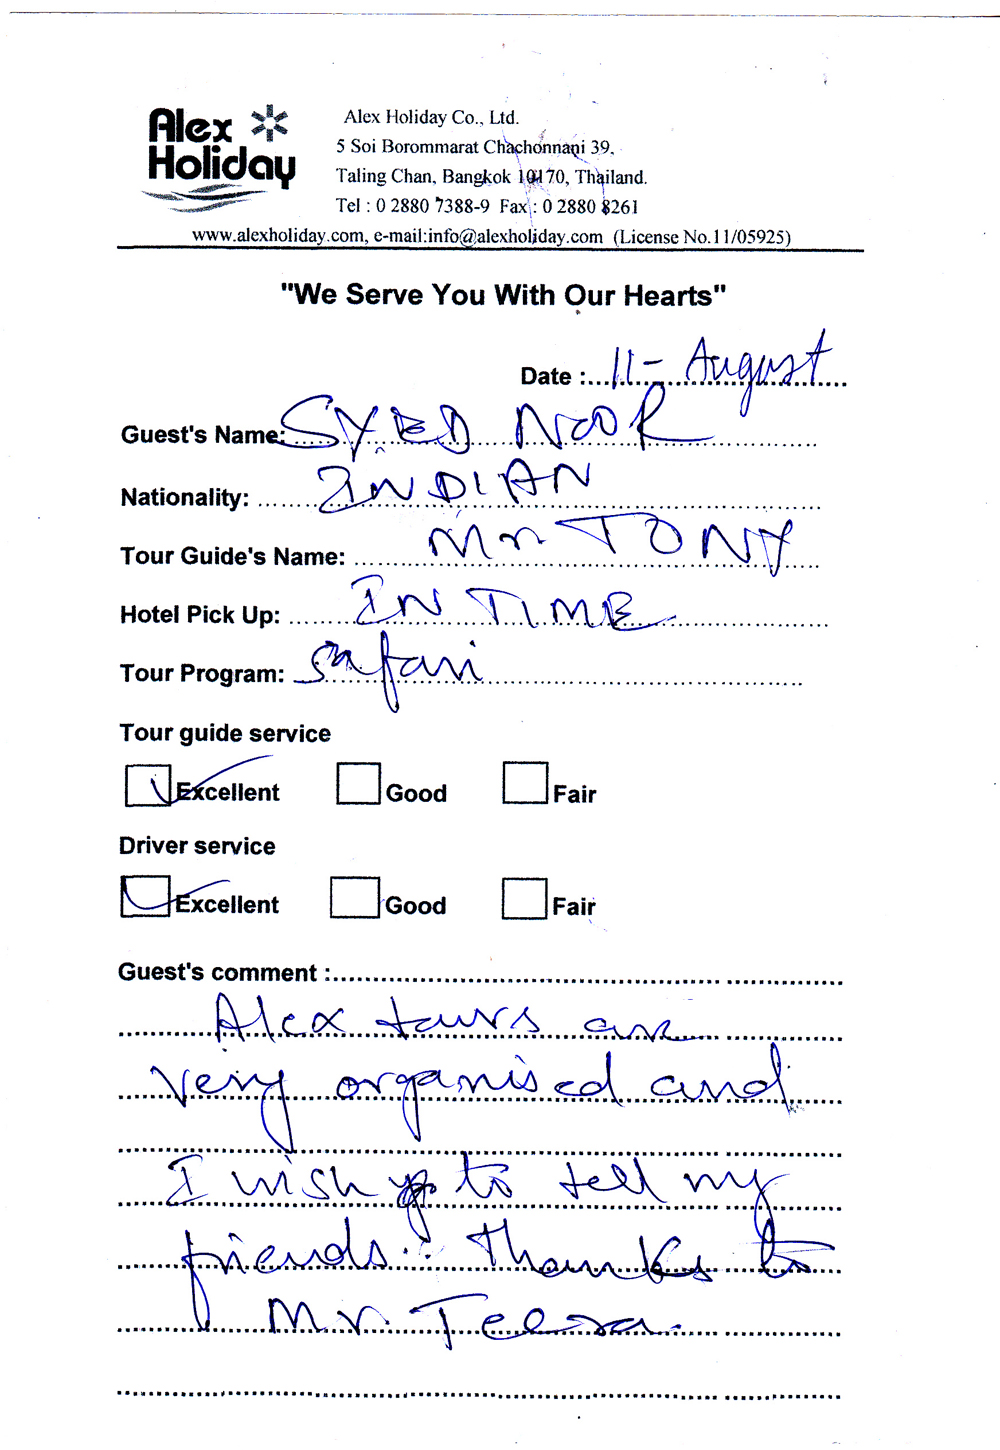 Alex Holiday
Alex Holiday Co., Ltd.
5 Soi Borommarat Chachonnani 39,
Taling Chan, Bangkok 10170, Thailand.
Tel : 0 2880 7388-9 Fax : 0 2880 8261
www.alexholiday.com, e-mail:info@alexholiday.com (License No.11/05925)
"We Serve You With Our Hearts"
Date : 11 - August
Guest's Name: SYED NOOR
Nationality: INDIAN
Tour Guide's Name: Mr. TONY
Hotel Pick Up: IN TIME
Tour Program: Safari
Tour guide service
Excellent Good Fair
Driver service
Excellent Good Fair
Guest's comment :
Alex tours are
very organised and
I wish to tell my
friends. thanks to
Mr.